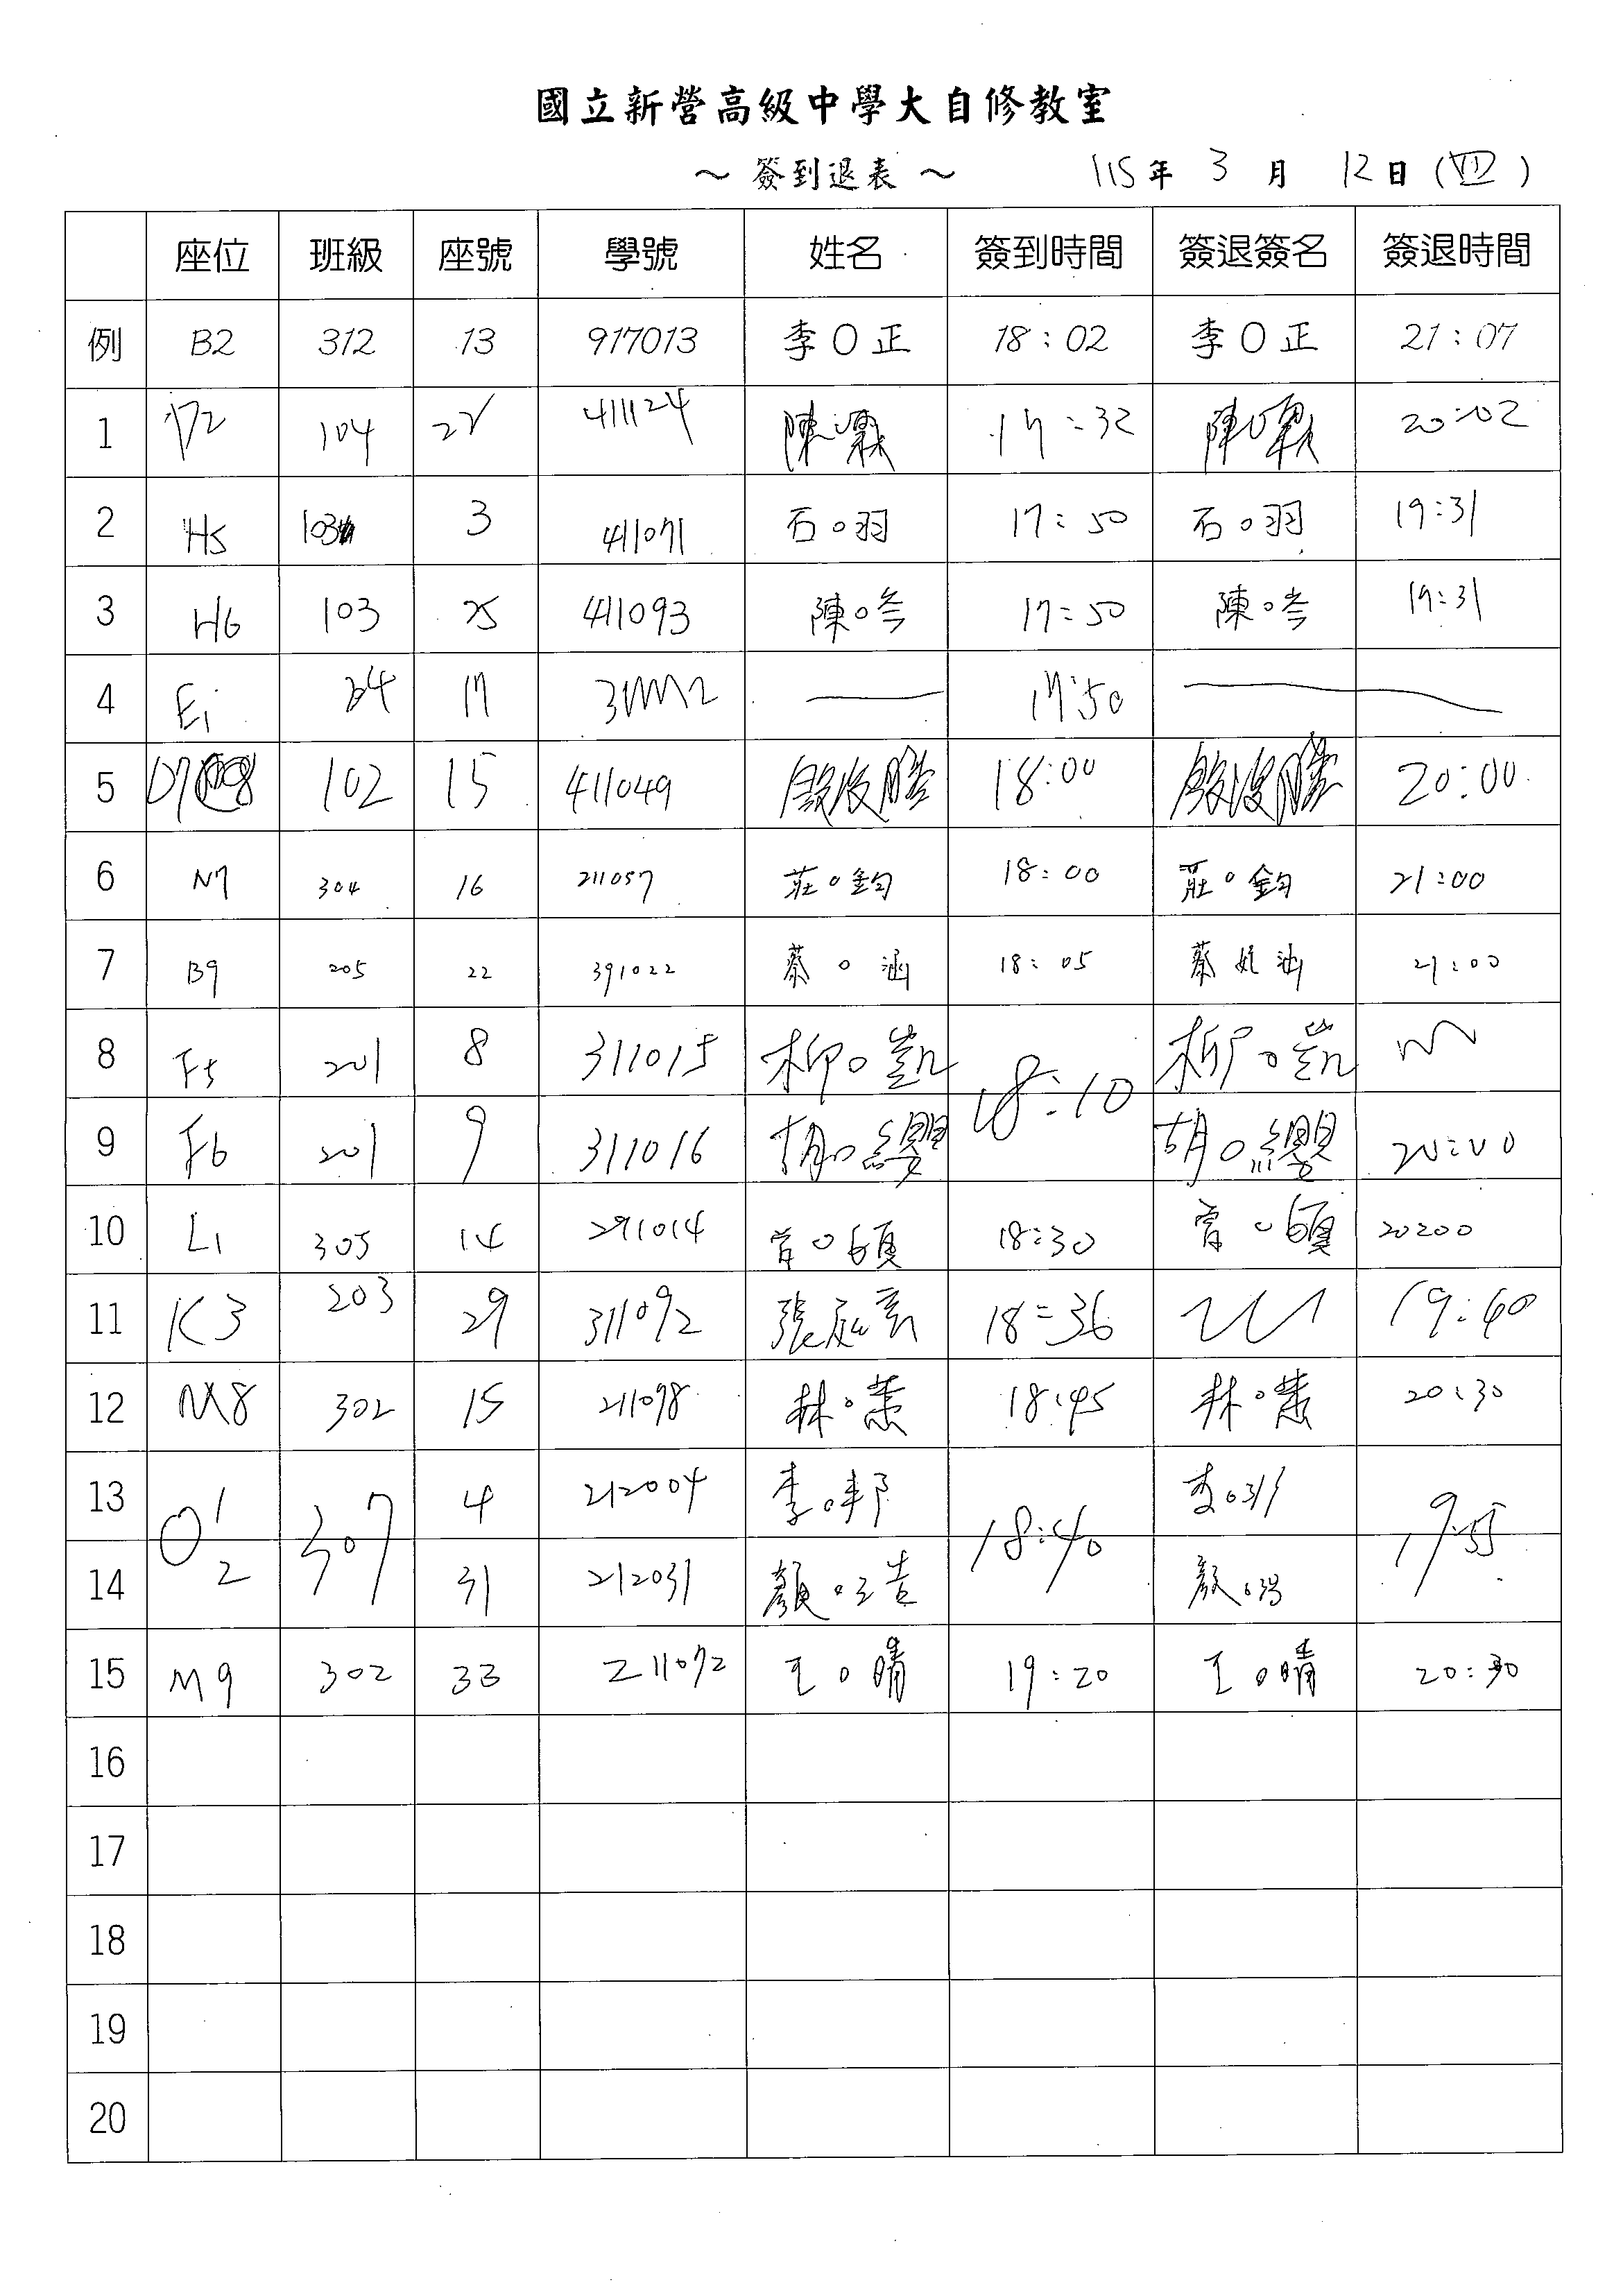 國立新營高級中學大自修教室
～ 簽到退表 ～ 115年 3 月 12日 (四)
座位 班級 座號 學號 姓名 簽到時間 簽退簽名 簽退時間
例 B2 312 13 917013 李O正 18:02 李O正 21:07
1 104 411124 陳 17:32 陳 20:02
2 H5 103 3 411071 石o羽 17:50 石o羽 19:31
3 H6 103 25 411093 陳o岑 17:50 陳o岑 19:31
4 E1 204 17 17:50
5 D7 102 15 411049 18:00 20:00
6 N7 304 16 211057 莊o鈞 18:00 莊o鈞 21:00
7 B9 205 22 391022 蔡o涵 18:05 蔡 涵 21:00
8 F5 201 8 311015 柳o凱 18:10 柳o凱
9 F6 201 9 311016 胡o纓 胡o纓 20:00
10 L1 305 14 291014 18:30 20:00
11 K3 203 29 311092 張 18:36 19:40
12 M8 302 15 211098 林o 18:45 林o 20:30
13 O1 307 4 212004 李o邦 18:40 李o 19:55
14 2 31 212031 顏o 顏o
15 M9 302 33 211072 王o晴 19:20 王o晴 20:30
16
17
18
19
20